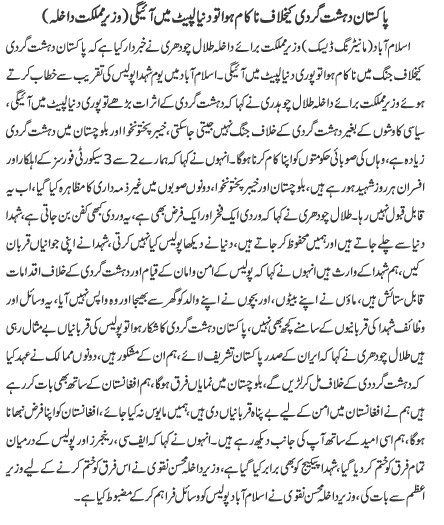 پاکستان دہشت گردی کیخلاف ناکام ہوا تو دنیا لپیٹ میں آئیگی (وزیر مملکت داخلہ)
اسلام آباد (مانیٹرنگ ڈیسک) وزیر مملکت برائے داخلہ طلال چودھری نے خبردار کیا ہے کہ پاکستان دہشت گردی
کیخلاف جنگ میں ناکام ہوا تو پوری دنیا لپیٹ میں آئیگی۔ اسلام آباد میں یوم شہدا پولیس کی تقریب سے خطاب کرتے
ہوئے وزیر مملکت برائے داخلہ طلال چوہدری نے کہا کہ دہشت گردی کے اثرات بڑھے تو پوری دنیا لپیٹ میں آئیگی،
سیاسی کاوشوں کے بغیر دہشت گردی کے خلاف جنگ نہیں جیتی جاسکتی، خیبر پختونخوا اور بلوچستان میں دہشت گردی
زیادہ ہے، وہاں کی صوبائی حکومتوں کو اپنا کام کرنا ہوگا۔ انہوں نے کہا کہ ہمارے 2 سے 3 سیکورٹی فورسز کے اہلکار اور
افسران ہر روز شہید ہورہے ہیں، بلوچستان اور خیبر پختونخوا، دونوں صوبوں میں غیر ذمہ داری کا مظاہرہ کیا گیا، اب یہ
قابل قبول نہیں رہا۔ طلال چودھری نے کہا کہ وردی ایک فخر اور ایک فرض بھی ہے، یہ وردی کبھی کفن بن جاتی ہے، شہدا
دنیا سے چلے جاتے ہیں اور ہمیں محفوظ کر جاتے ہیں، دنیا نے دیکھا پولیس کیا نہیں کرتی، شہدا نے اپنی جوانیاں قربان
کیں، ہم شہدا کے وارث ہیں انہوں نے کہا کہ پولیس کے امن و امان کے قیام اور دہشت گردی کے خلاف اقدامات
قابل ستائش ہیں، ماؤں نے اپنے بیٹوں، اور بچوں نے اپنے والد کو گھر سے بھیجا اور وہ واپس نہیں آیا، یہ وسائل اور
وظائف شہدا کی قربانیوں کے سامنے کچھ بھی نہیں، پاکستان دہشت گردی کا شکار ہوا تو پولیس کی قربانیاں بے مثال رہی
ہیں طلال چودھری نے کہا کہ ایران کے صدر پاکستان تشریف لائے، ہم ان کے مشکور ہیں، دونوں ممالک نے عہد کیا
کہ دہشت گردی کے خلاف مل کر لڑیں گے، بلوچستان میں نمایاں فرق ہوگا، ہم افغانستان کے ساتھ بھی بات کر رہے
ہیں ہم نے افغانستان میں امن کے لیے بے پناہ قربانیاں دی ہیں، ہمیں مایوس نہ کیا جائے، افغانستان کو اپنا فرض نبھانا
ہوگا، ہم اسی امید کے ساتھ آپ کی جانب دیکھ رہے ہیں۔ انہوں نے کہا کہ ایف سی، رینجرز اور پولیس کے درمیان
تمام فرق کو ختم کر دیا گیا، شہدا پیکیج کو بھی برابر کیا گیا ہے، وزیر داخلہ محسن نقوی نے اس فرق کو ختم کرنے کے لیے وزیر
اعظم سے بات کی، وزیر داخلہ محسن نقوی نے اسلام آباد پولیس کو وسائل فراہم کر کے مضبوط کیا ہے۔